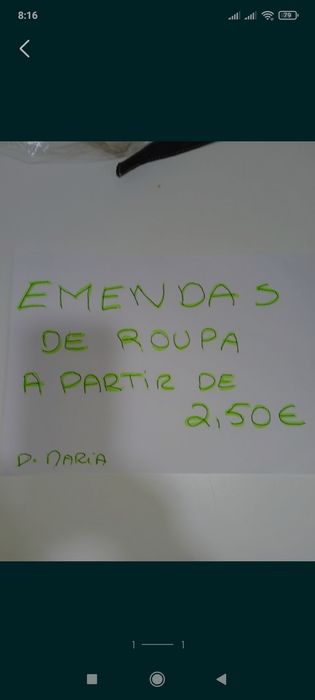 8:16
79
EMENDAS
DE ROUPA
A PARTIR DE
2,50€
D. MARIA
1 1